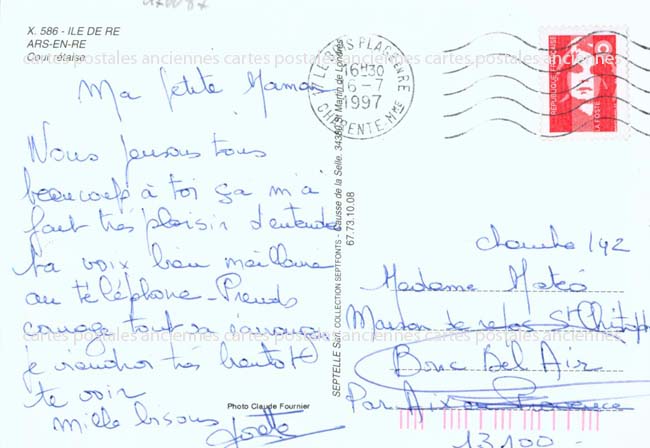 X. 586 - ILE DE RE
ARS-EN-RE
Cour rétaise
cartes postales anciennes cartes postales anciennes cartes postales anciennes
Ma petite Maman
Nous pensons tous
beaucoup à toi ça m'a
fait très plaisir d'entendre
ta voix bien meilleure
au téléphone - Prends
courage tout va s'arranger
je viendrai très bientôt
te voir
mille bisous
Josette
Photo Claude Fournier
SEPTELLE Sarl. COLLECTION SEPTFONTS - Causse de la Selle. 34380 St Martin de Londres
67.73.10.08
LE BOIS PLAGE EN RE
16H30
6-7
1997
CHARENTE-Mme
REPUBLIQUE FRANÇAISE
LA POSTE
chambre 142
Madame Mateo
Maison de repos St Christophe
Bouc Bel Air
Par Aix en Provence
13100
cartes postales anciennes cartes postales anciennes cartes postales anciennes